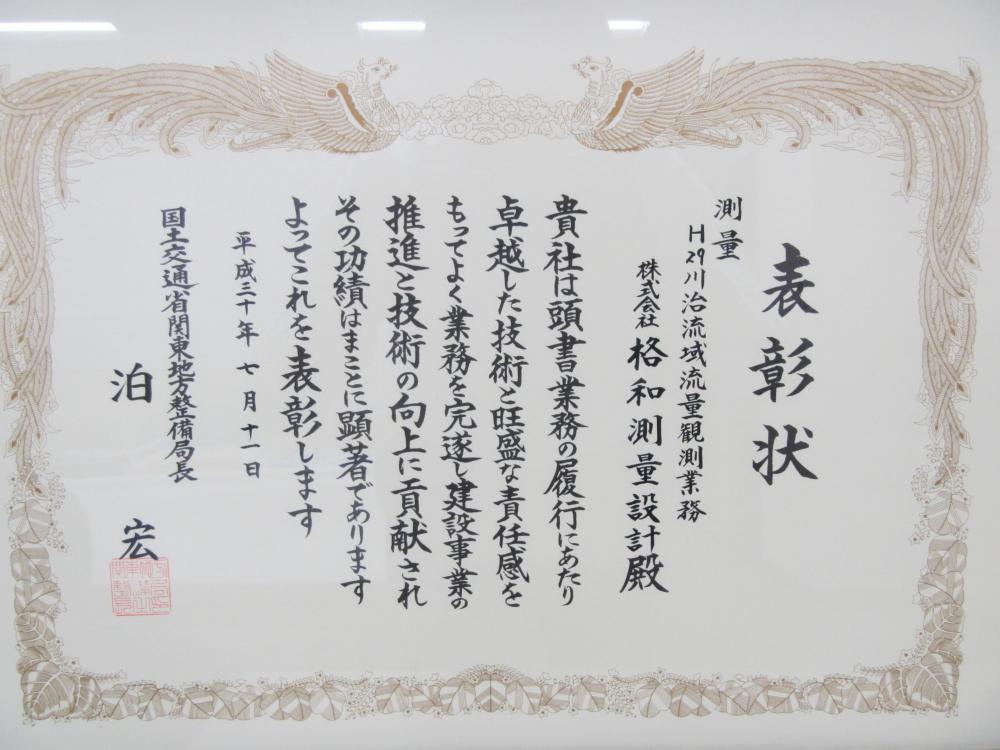 表彰状
測量
H29川治流域流量観測業務
株式会社 格和測量設計殿
貴社は頭書業務の履行にあたり
卓越した技術と旺盛な責任感を
もってよく業務を完遂し建設事業の
推進と技術の向上に貢献され
その功績はまことに顕著であります
よってこれを表彰します
平成三十年七月十一日
国土交通省関東地方整備局長
泊 宏